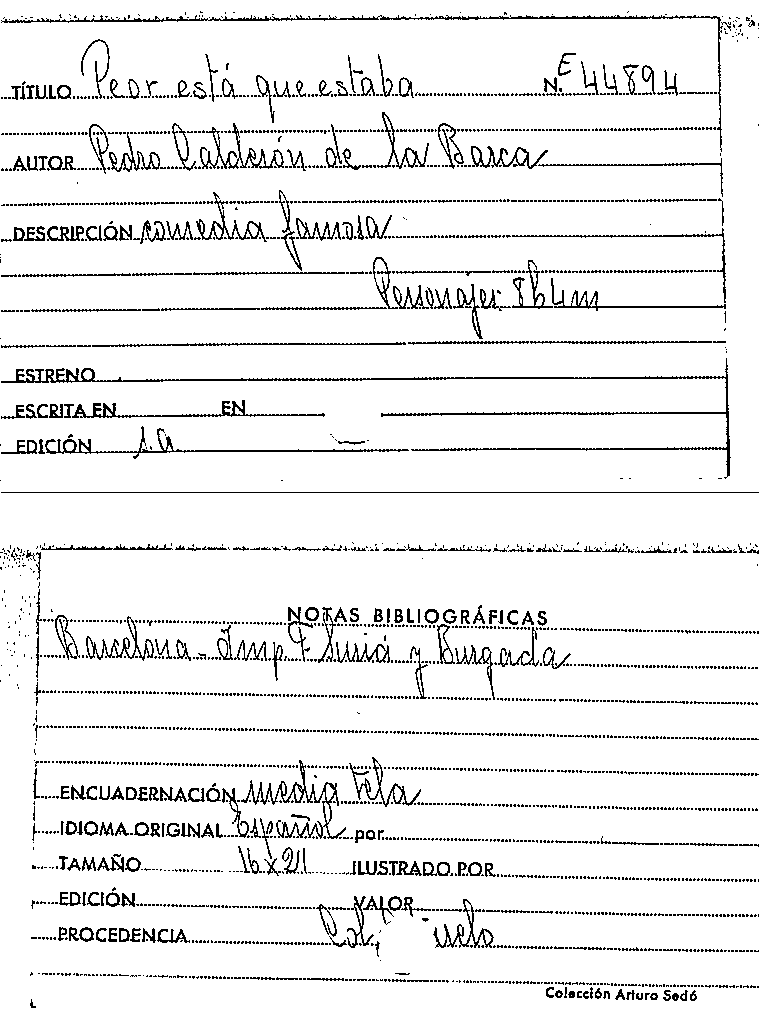 TÍTULO Peor está que estaba N.º E 44894
AUTOR Pedro Calderón de la Barca
DESCRIPCIÓN comedia famosa
Personajes 8h4m
ESTRENO
ESCRITA EN EN
EDICIÓN s.a.
NOTAS BIBLIOGRÁFICAS
Barcelona - Imp F Suriá y Burgada
ENCUADERNACIÓN media tela
IDIOMA ORIGINAL Español por
TAMAÑO 16x21 ILUSTRADO POR
EDICIÓN VALOR
PROCEDENCIA Col.
Colección Arturo Sedó